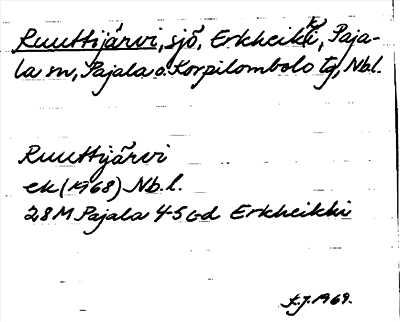 Ruuttijärvi, sjö, Erkheikki, Paja-
la sn, Pajala o. Korpilombolo tg, Nb.l.
Ruuttijärvi
ek (1968) Nb.l.
28M Pajala 4-5 c-d Erkheikki
t.j. 1969.